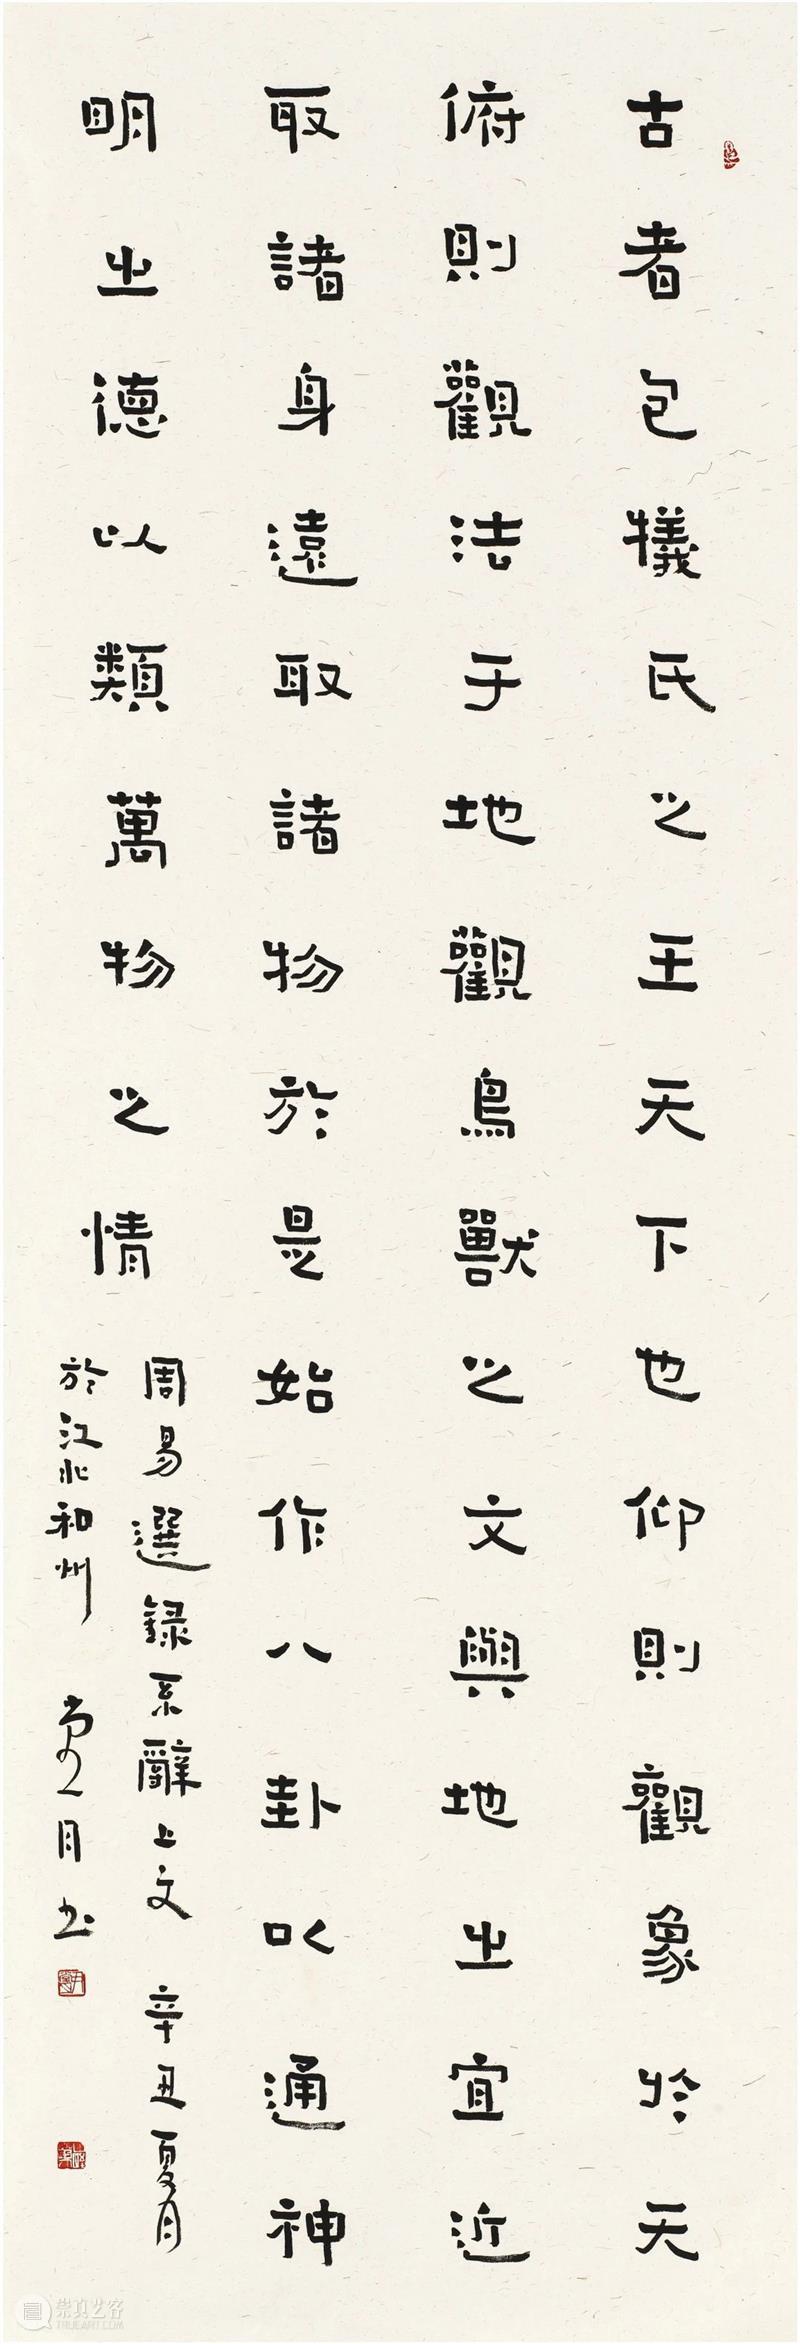 古者包犠氏之王天下也仰則觀象於天
俯則觀法于地觀鳥獸之文與地之宜近
取諸身遠取諸物於是始作八卦以通神
明之德以類萬物之情
周易選録系辭上文 辛丑夏月
於江北和州 月书
崇真艺客
TRUEART.COM